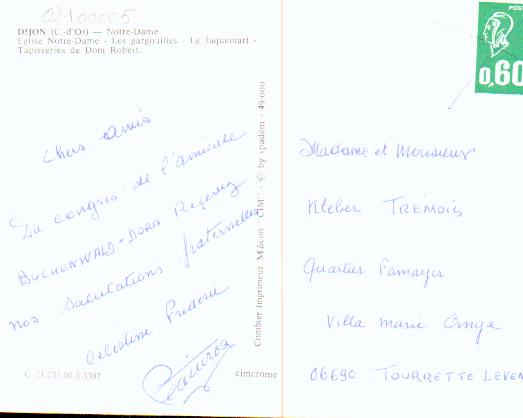 0241000005
DIJON (C.-d'Or) — Notre-Dame
Eglise Notre-Dame - Les gargouilles - Le Jaquemart -
Tapisseries de Dom Robert.
Chers amis
Du congrès de l'amicale
BUCHENWALD-DORA
nos salutations fraternelles
Combier Imprimeur Mâcon "CIM" - © by spadem - 49-000
C 21.231.00.3.3507
cimcrome
POSTE
0,60
Madame et Monsieur
Kleber TRÉMOIS
Quartier Famayer
Villa marie Ange
06690 TOURRETTE LEVEN